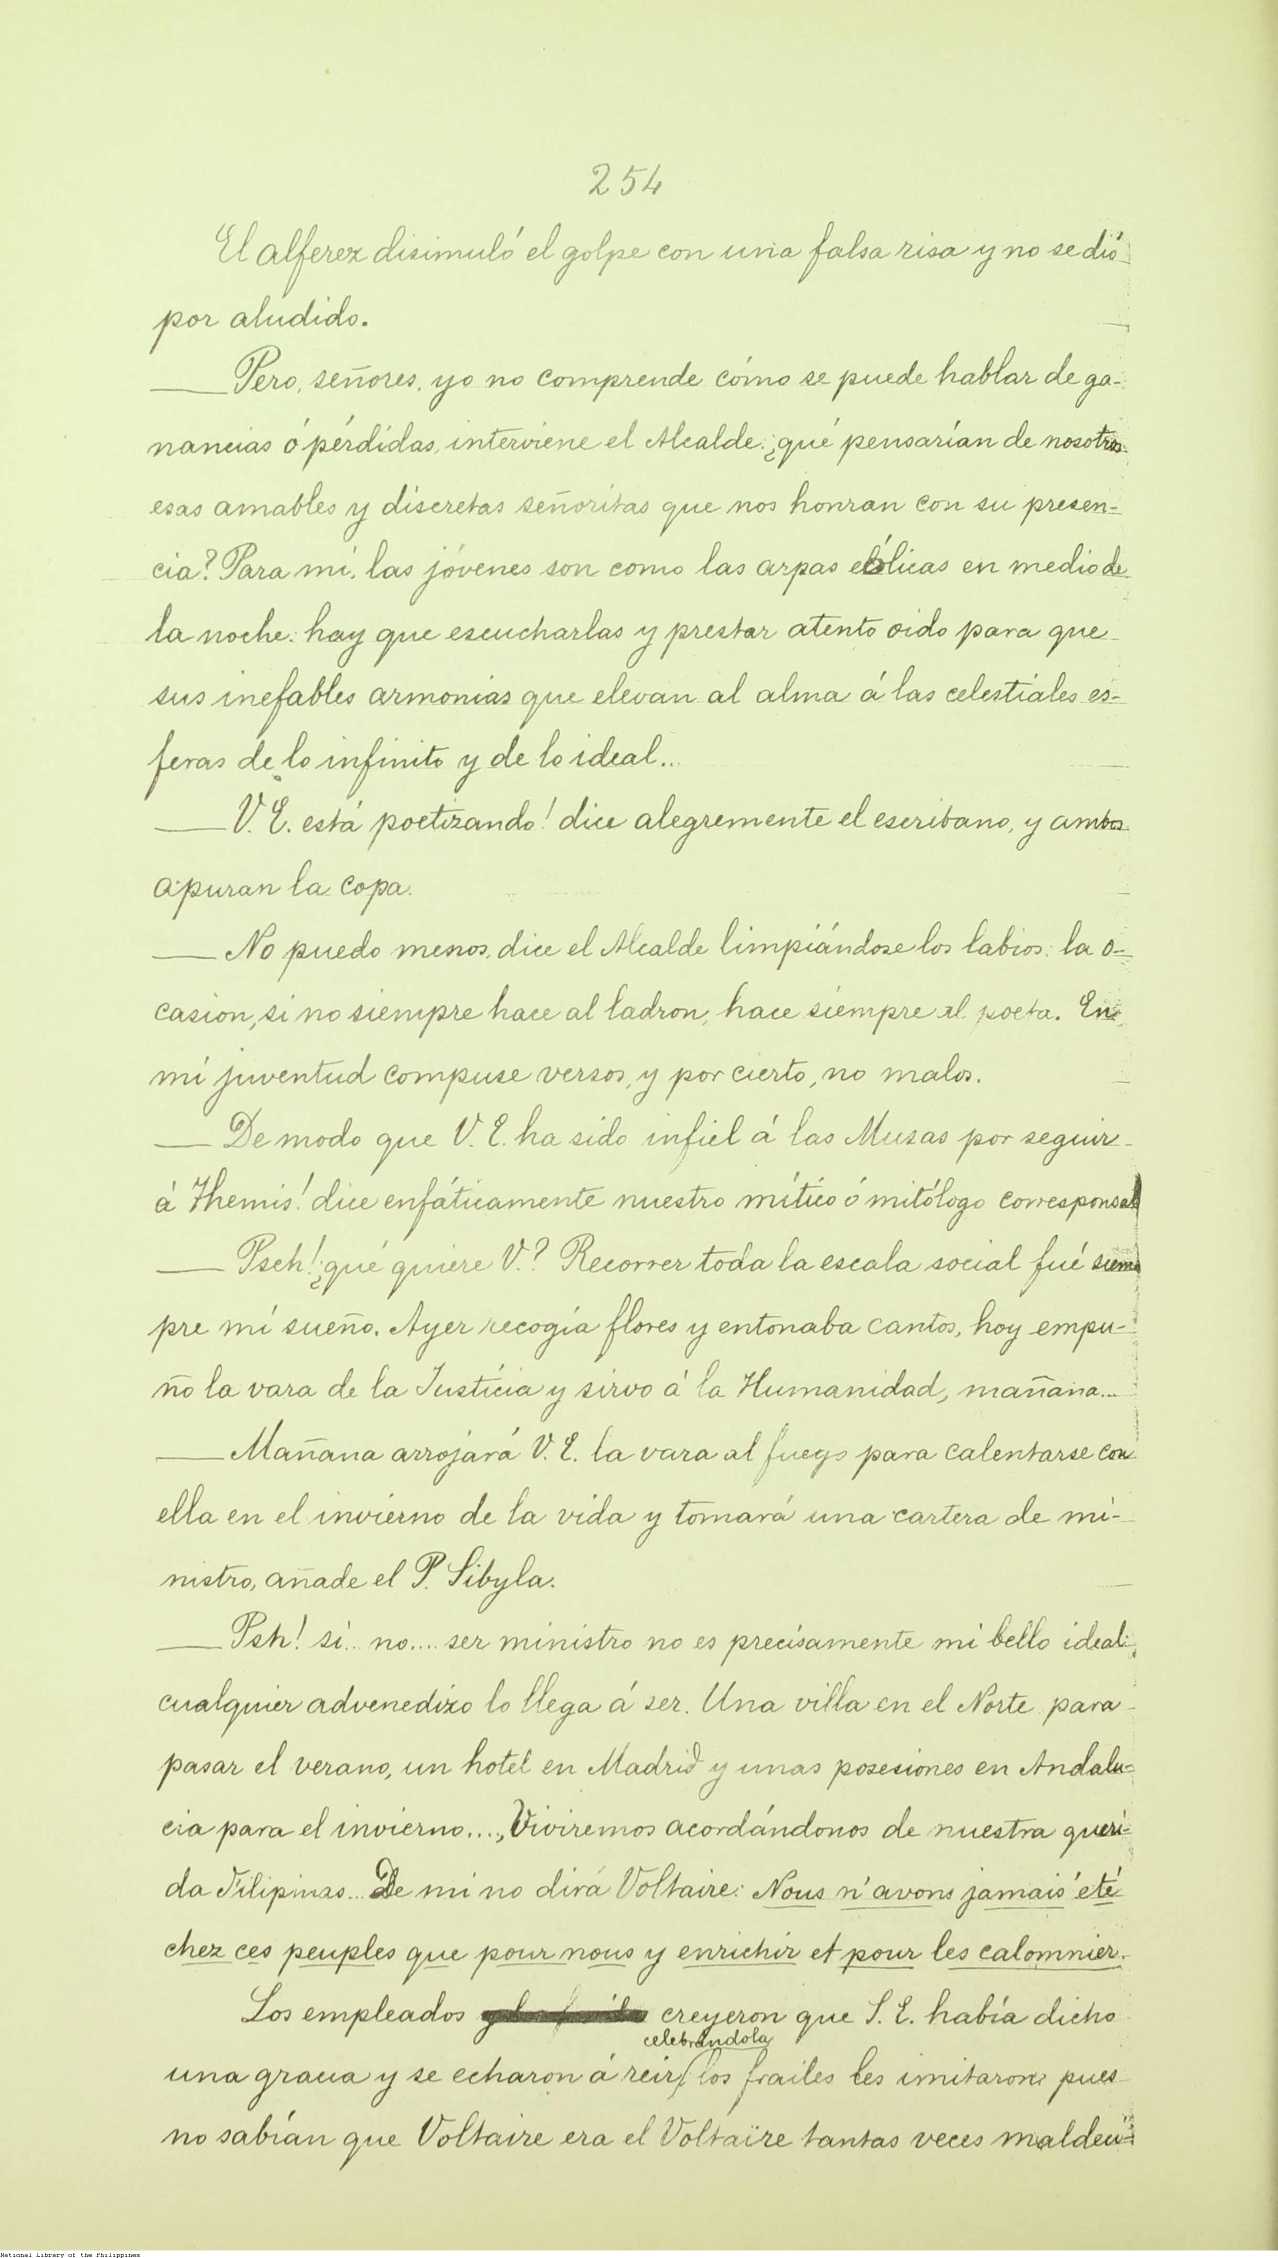 254
El alferez disimuló el golpe con una falsa risa y no se dió
por aludido.
—Pero, señores, yo no comprende cómo se puede hablar de ga-
nancias ó pérdidas, interviene el Alcalde. ¿qué pensarían de nosotros
esas amables y discretas señoritas que nos honran con su presen-
cia? Para mí, las jóvenes son como las arpas eólicas en medio de
la noche: hay que escucharlas y prestar atento oido para que
sus inefables armonías que elevan al alma á las celestiales es-
feras de lo infinito y de lo ideal...
—V. E. está poetizando! dice alegremente el escribano, y ambos
apuran la copa.
—No puedo menos, dice el Alcalde limpiándose los labios: la o-
casion, si no siempre hace al ladron, hace siempre al poeta. En
mi juventud compuse versos, y por cierto, no malos.
—De modo que V. E. ha sido infiel á las Musas por seguir
á Themis! dice enfáticamente nuestro mítico ó mitólogo corresponsal
—Psch! ¿qué quiere V.? Recorrer toda la escala social fué siem
pre mi sueño. Ayer recogía flores y entonaba cantos, hoy empu-
ño la vara de la Justicia y sirvo á la Humanidad, mañana...
—Mañana arrojará V. E. la vara al fuego para calentarse con
ella en el invierno de la vida y tomará una cartera de mi-
nistro, añade el P. Sibyla.
—Psh! sí.. no.... ser ministro no es precisamente mi bello ideal:
cualquier advenedizo lo llega á ser. Una villa en el Norte para
pasar el verano, un hotel en Madrid y unas posesiones en Andalu-
cia para el invierno...., Viviremos acordándonos de nuestra queri-
da Filipinas... De mí no dirá Voltaire: Nous n'avons jamais été
chez ces peuples que pour nous y enrichir et pour les calomnier.
Los empleados creyeron que S. E. había dicho
celebrándola
una gracia y se echaron á reir los frailes les imitaron pues
no sabían que Voltaire era el Voltaïre tantas veces maldeci-
National Library of the Philippines